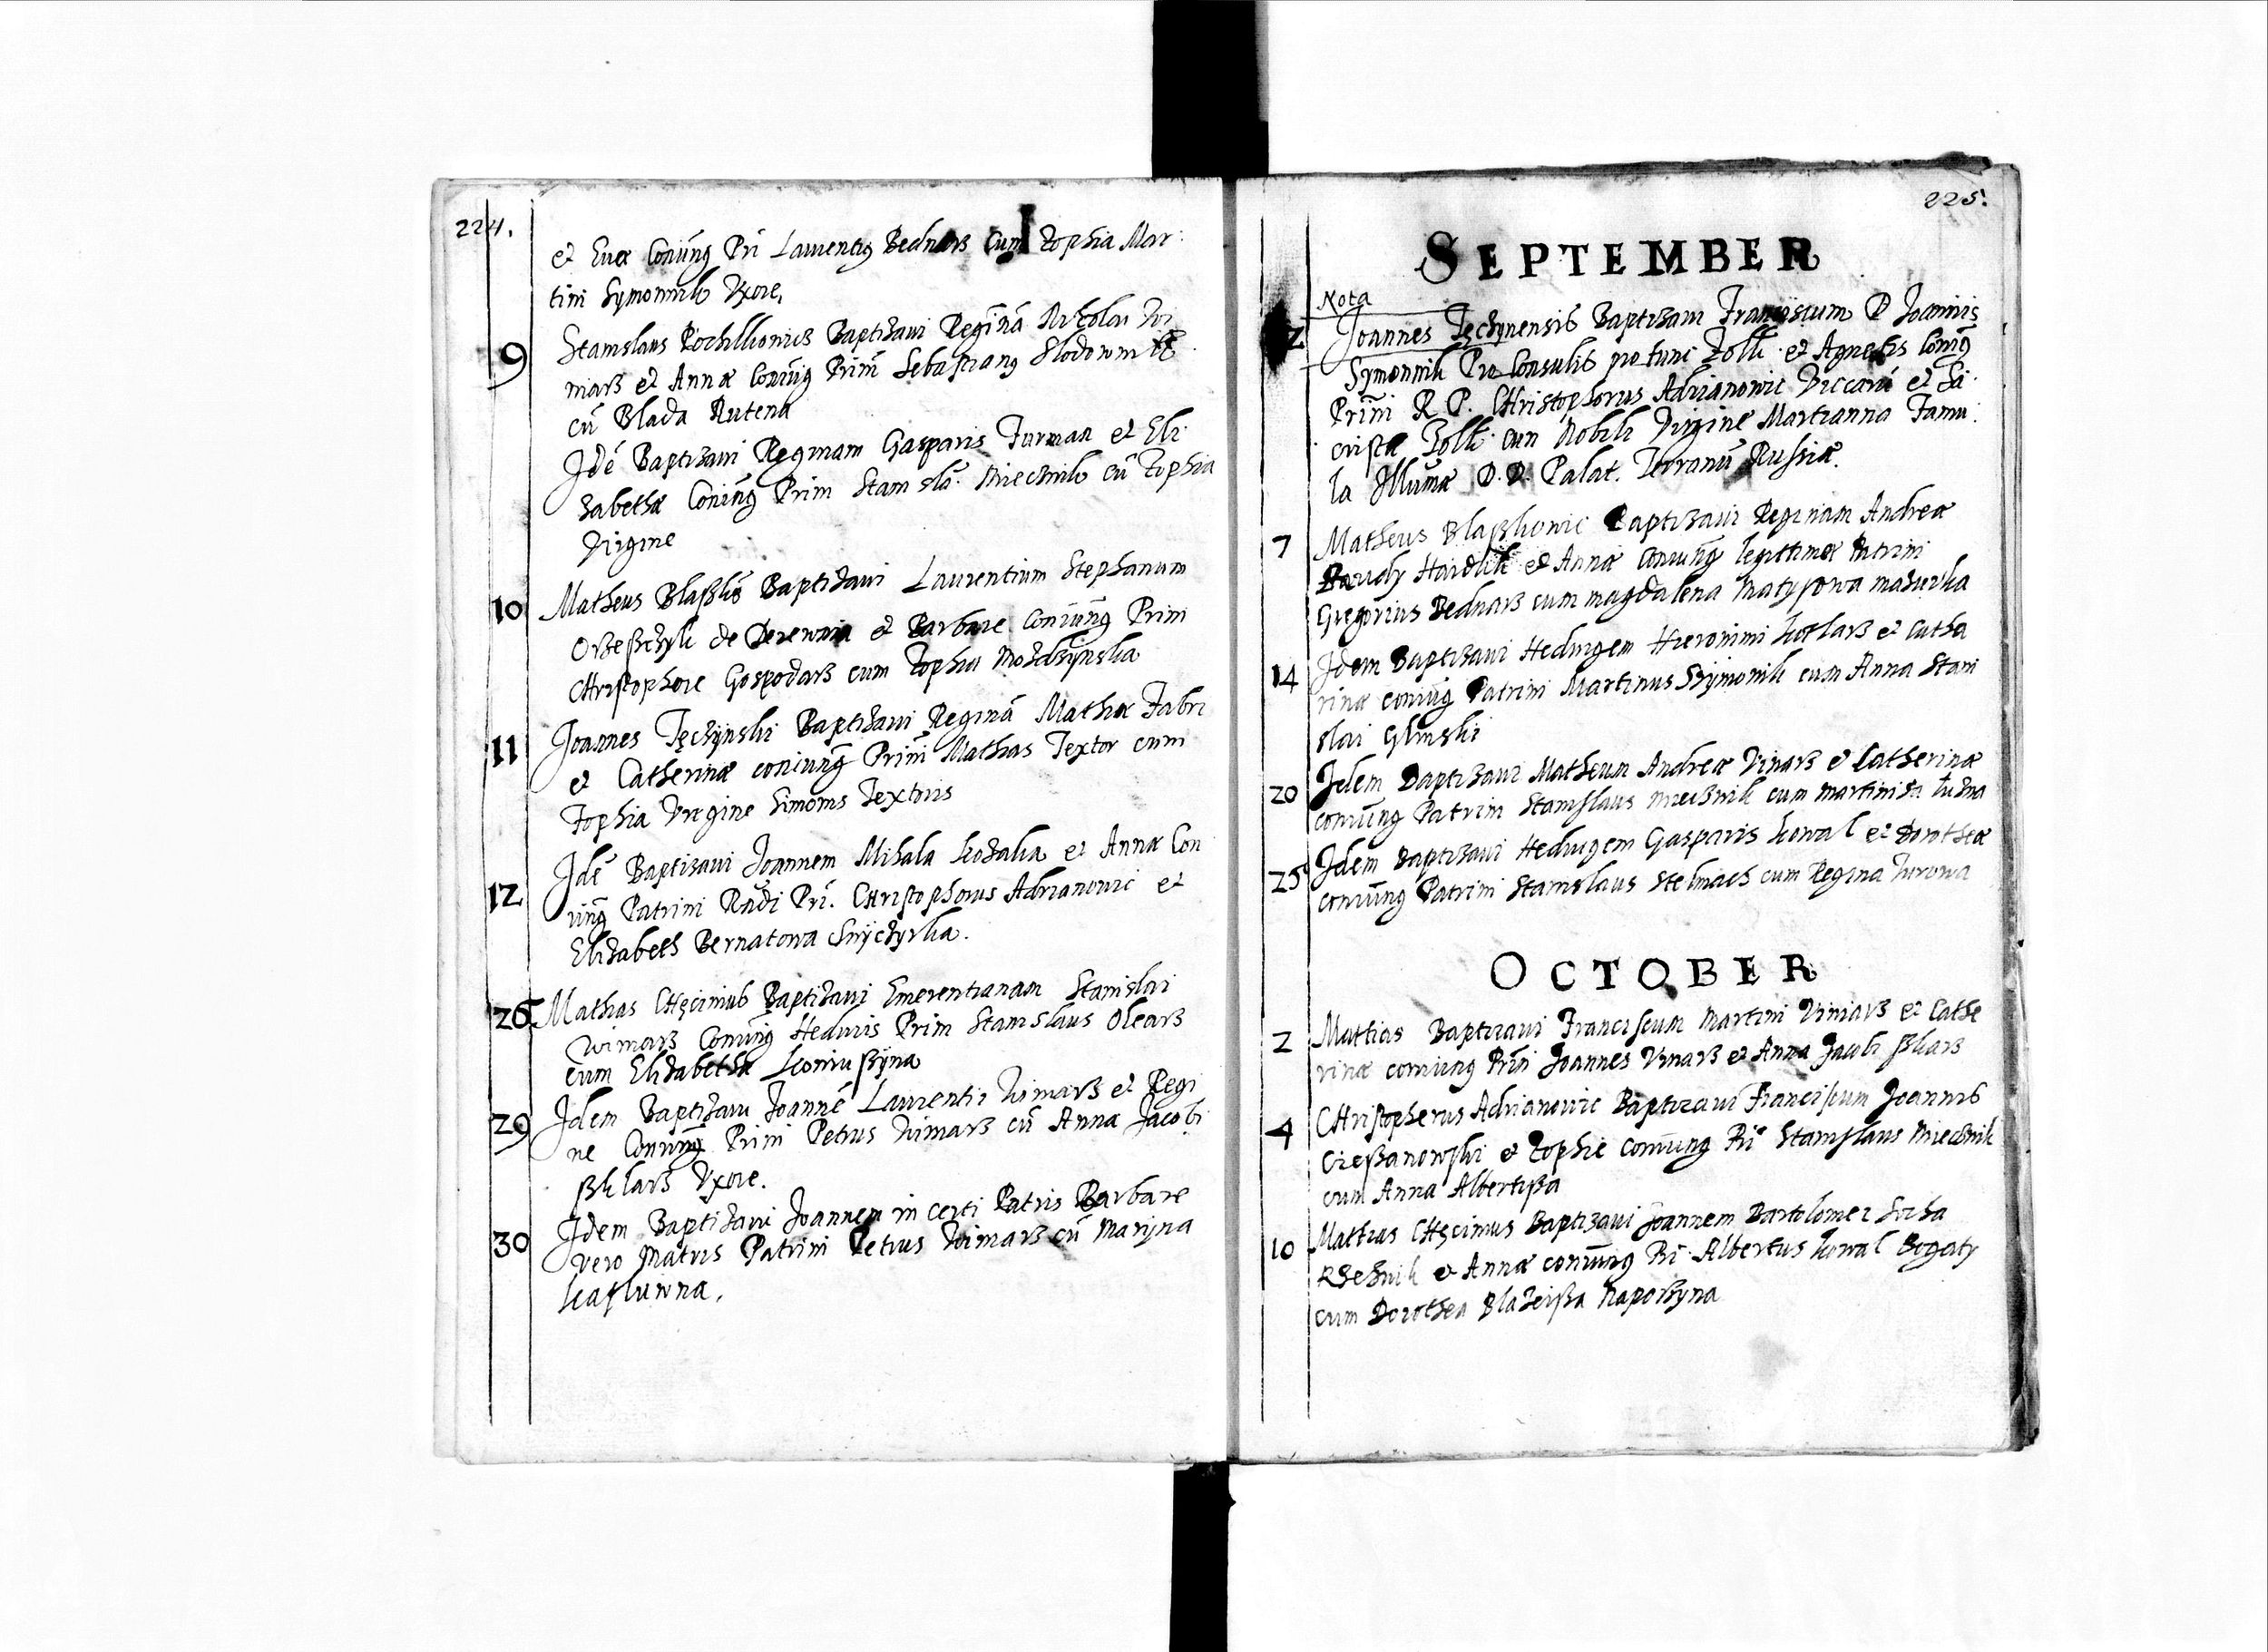 224.
et Euæ Coniūg Pri Laurentiꝰ Bednarz cum Zophia Mar:
tini Symonnik Vxore,
9 Stanislaus Baptizaui Reginā Nikolai Wi
niarz et Annæ Coniūg Prim̄ Sebastianꝰ
cū Blada Rutena
Idē Baptizaui Reginam Gasparis Furman et Eli
zabethæ Coniūg Prim Stanisla: Miecznik cū Zophia
Virgine
10 Matheus Blaßkō Baptizaui Laurentium Stephanum
de et Barbare Coniūng Prim
Christophore Gospodarz cum Zophia
11 Joannes Tęczynski Baptizaui Reginā Mathiæ Fabri
et Catherinæ coniung Prim̄ Mathias Textor cum
Zophia Virgine Simonis Textoris
12 Idē Baptizaui Joannem Mihala Kozalka et Annæ Con
iūng Patrini Pri. Christophorus Adrianowic et
Elizabeth Bernatowa
26 Mathias Baptizaui Emerentianam Stanislai
winiarz Coniūg Heduis Prim Stanislaus Olearz
cum Elizabetha Koniußyna
29 Idem Baptizaui Joannē Laurentii winiarz et Regi
ne Coniūng Prini Petrus winiarz cū Anna Jacobi
ßklarz Vxore.
30 Idem Baptizaui Joannem in certi Patris Barbare
vero Matris Patrini Petrus winiarz cū Maryna

225.
SEPTEMBER
Nota
2 Joannes Tęchynensis Baptizaui Franciscum D Joannis
Symonnik Pro Consulis pro tunc Zolk. et Agnetis Coniūg
Prim̄i R P. Christophorus Adrianowic Viccarii et Sa
cristæ Zolk. cum Nobili Virgine Martianna Famu
la Illumæ D. D. Palat. Terranū Russiæ.
7 Matheus Blaßkonic Baptizaui Reginam Andreæ
Haidik et Annæ Coniūng legittimæ Patrini
Gregorius Bednarz cum magdalena Matysowa mazurka
14 Idem Baptizaui Hedwigem Hieronimi Kotlarz et Catha
rinæ coniūg Patrini Martinus Szymonik cum Anna Stani
slai Glinski
20 Idem Baptizaui Matheum Andreæ Vinarz et Catherinæ
coniūng Patrini Stanislaus Miecznik cum
25 Idem Baptizaui Hedwigem Gasparis Kowal et Dorotheæ
coniūng Patrini Stanislaus Stelmach cum Regina
OCTOBER
2 Mattias Baptizaui Franciscum Martini Viniarz et Cathe
rinæ coniung Prini Joannes Vinarz et Anna Jacobi ßklarz
4 Christopherus Adrianowic Baptizaui Franciscum Joannis
Cießanowski et Zophie coniūng Pri Stanislaus Miecznik
cum Anna Albertißa
10 Mathias Baptizaui Joannem Bartolomei Socha
Rzeznik et Annæ coniūng Pri Albertus Kowal Bogaty
cum Dorothea Blazeißa